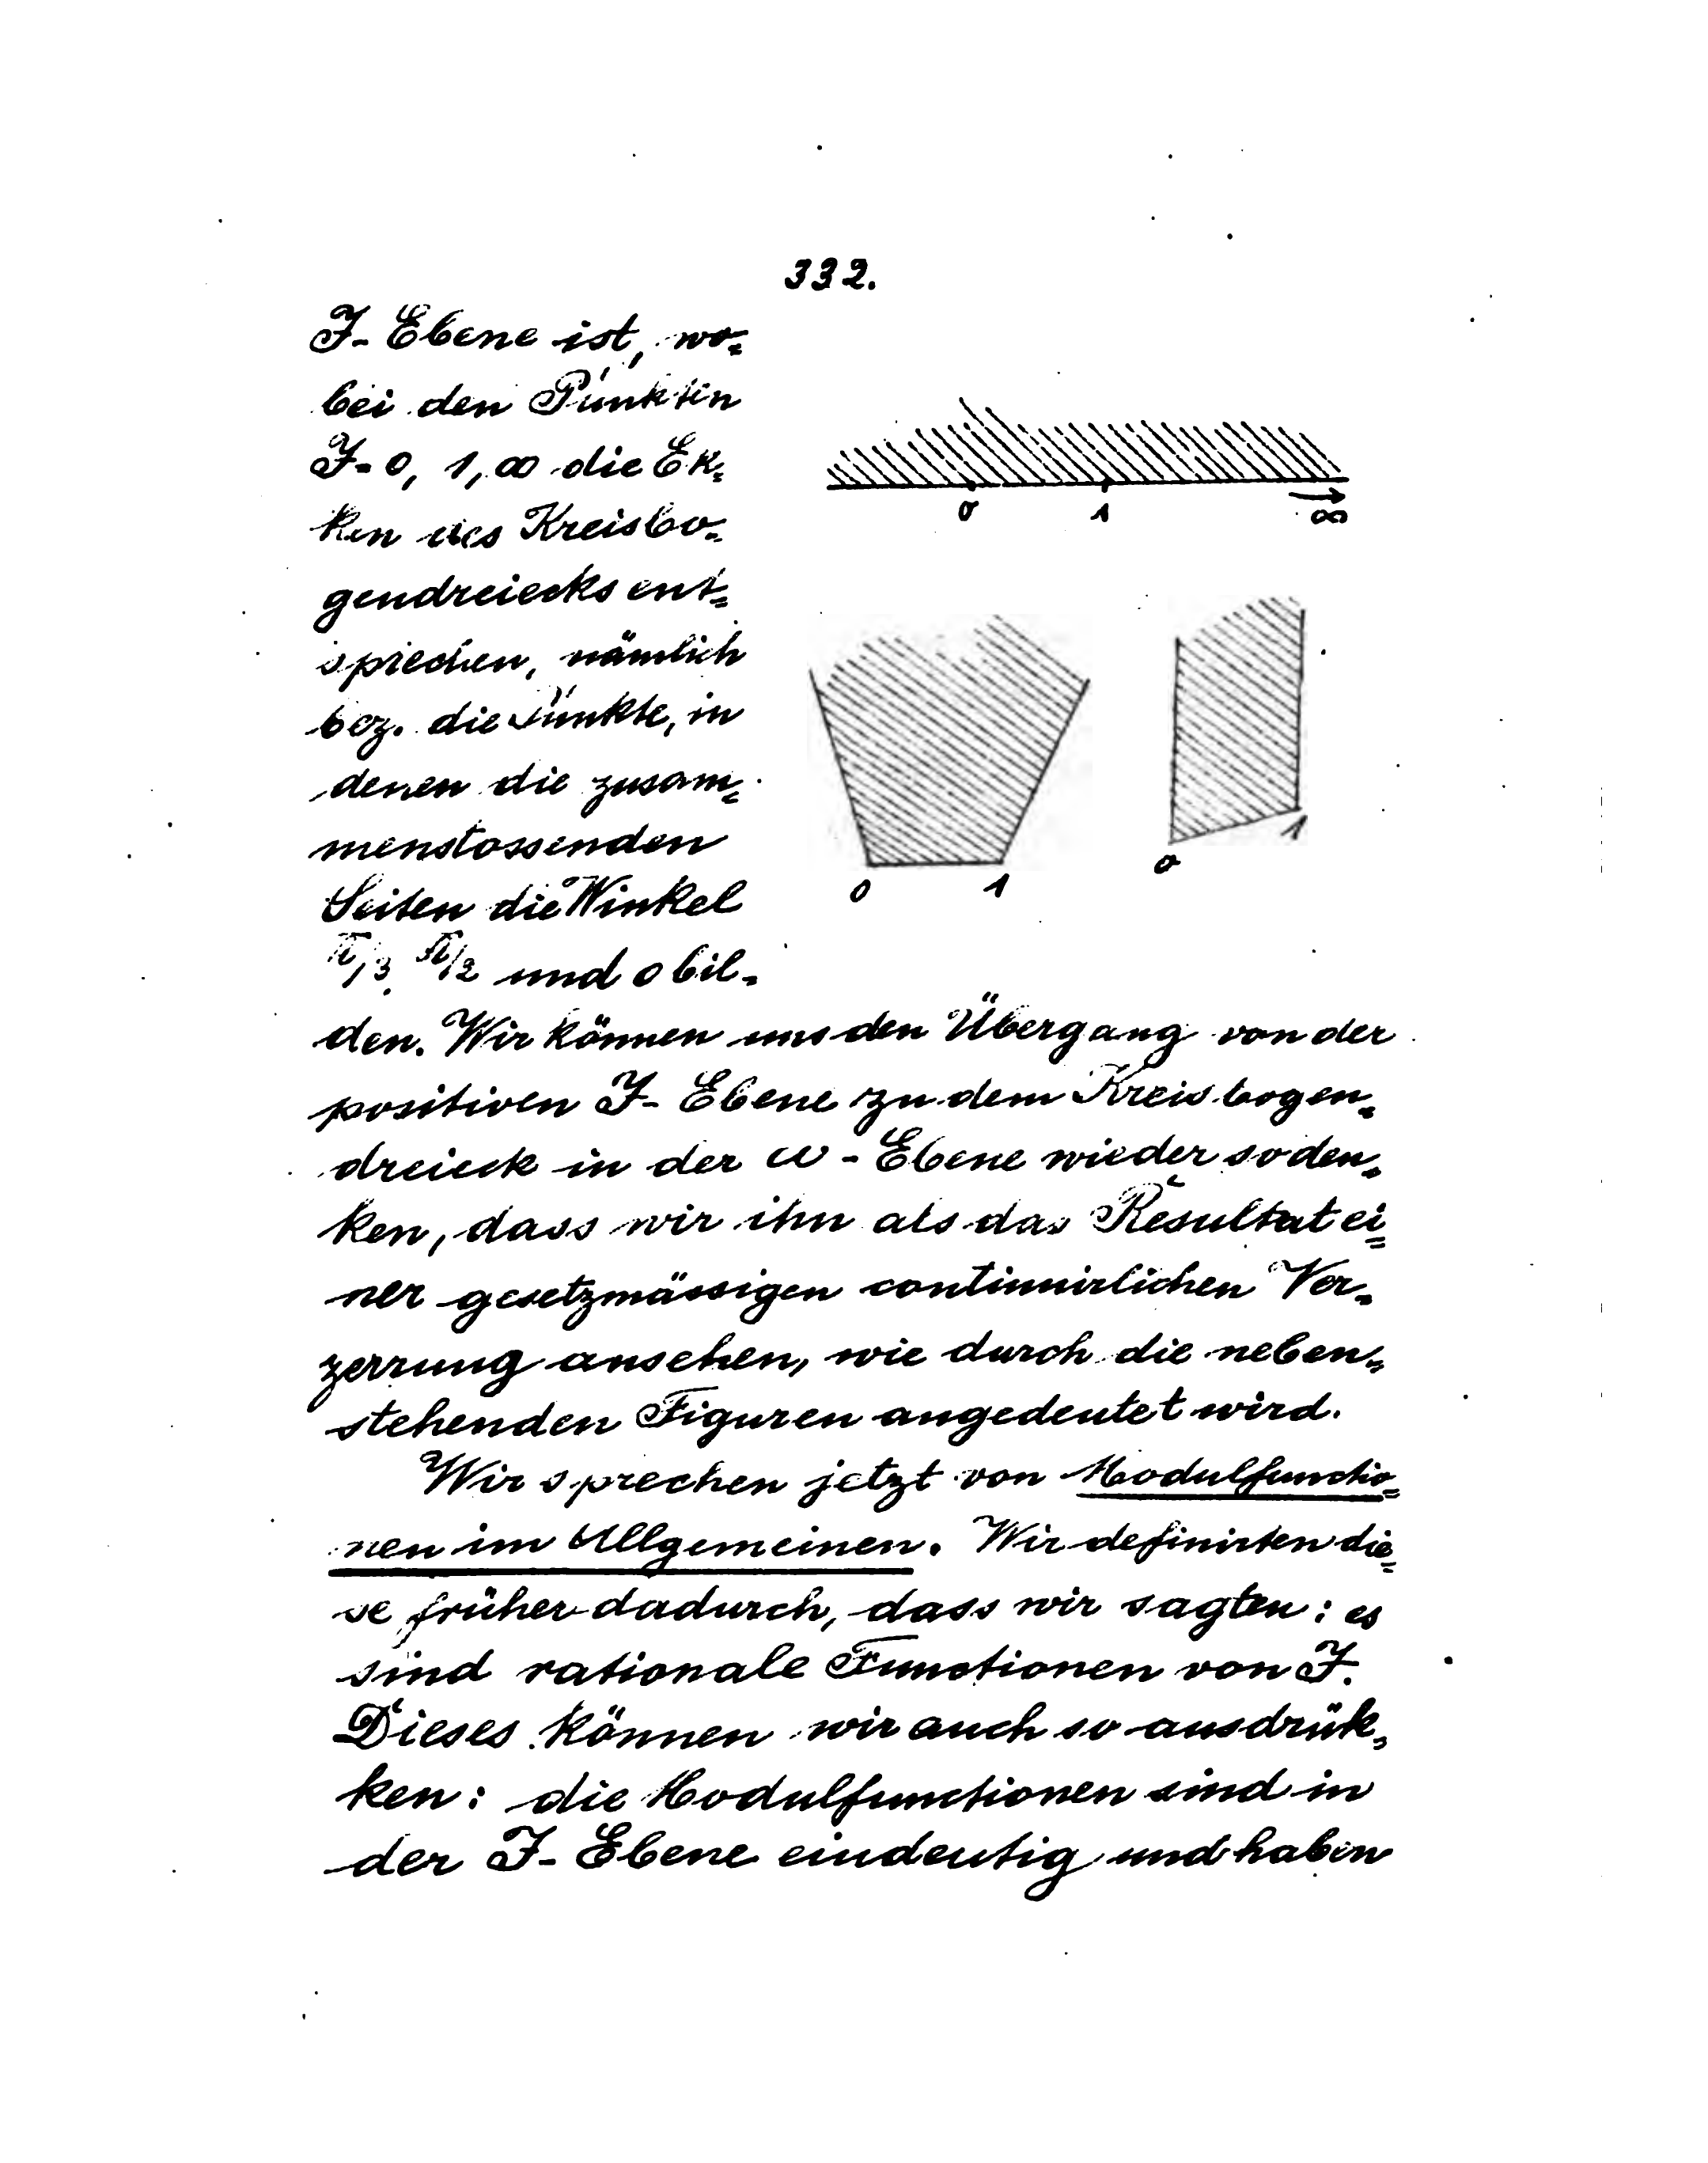 332.
J-Ebene ist, wo=
bei den Punkten
J=0, 1, ∞ die Ek=
ken des Kreisbo=
gendreiecks ent=
sprechen, nämlich
bez. die Punkte, in
denen die zusam=
menstossenden
Seiten die Winkel
π/3, π/2 und 0 bil=
den. Wir können uns den Übergang von der
positiven J-Ebene zu dem Kreisbogen=
dreieck in der ω-Ebene wieder so den=
ken, dass wir ihn als das Resultat ei=
ner gesetzmässigen continuirlichen Ver=
zerrung ansehen, wie durch die neben=
stehenden Figuren angedeutet wird.
Wir sprechen jetzt von Modulfunctio=
nen im Allgemeinen. Wir definirten die=
se früher dadurch, dass wir sagten: es
sind rationale Functionen von J.
Dieses können wir auch so ausdrük=
ken: die Modulfunctionen sind in
der J-Ebene eindeutig und haben
0 1 ∞
0 1
0 1